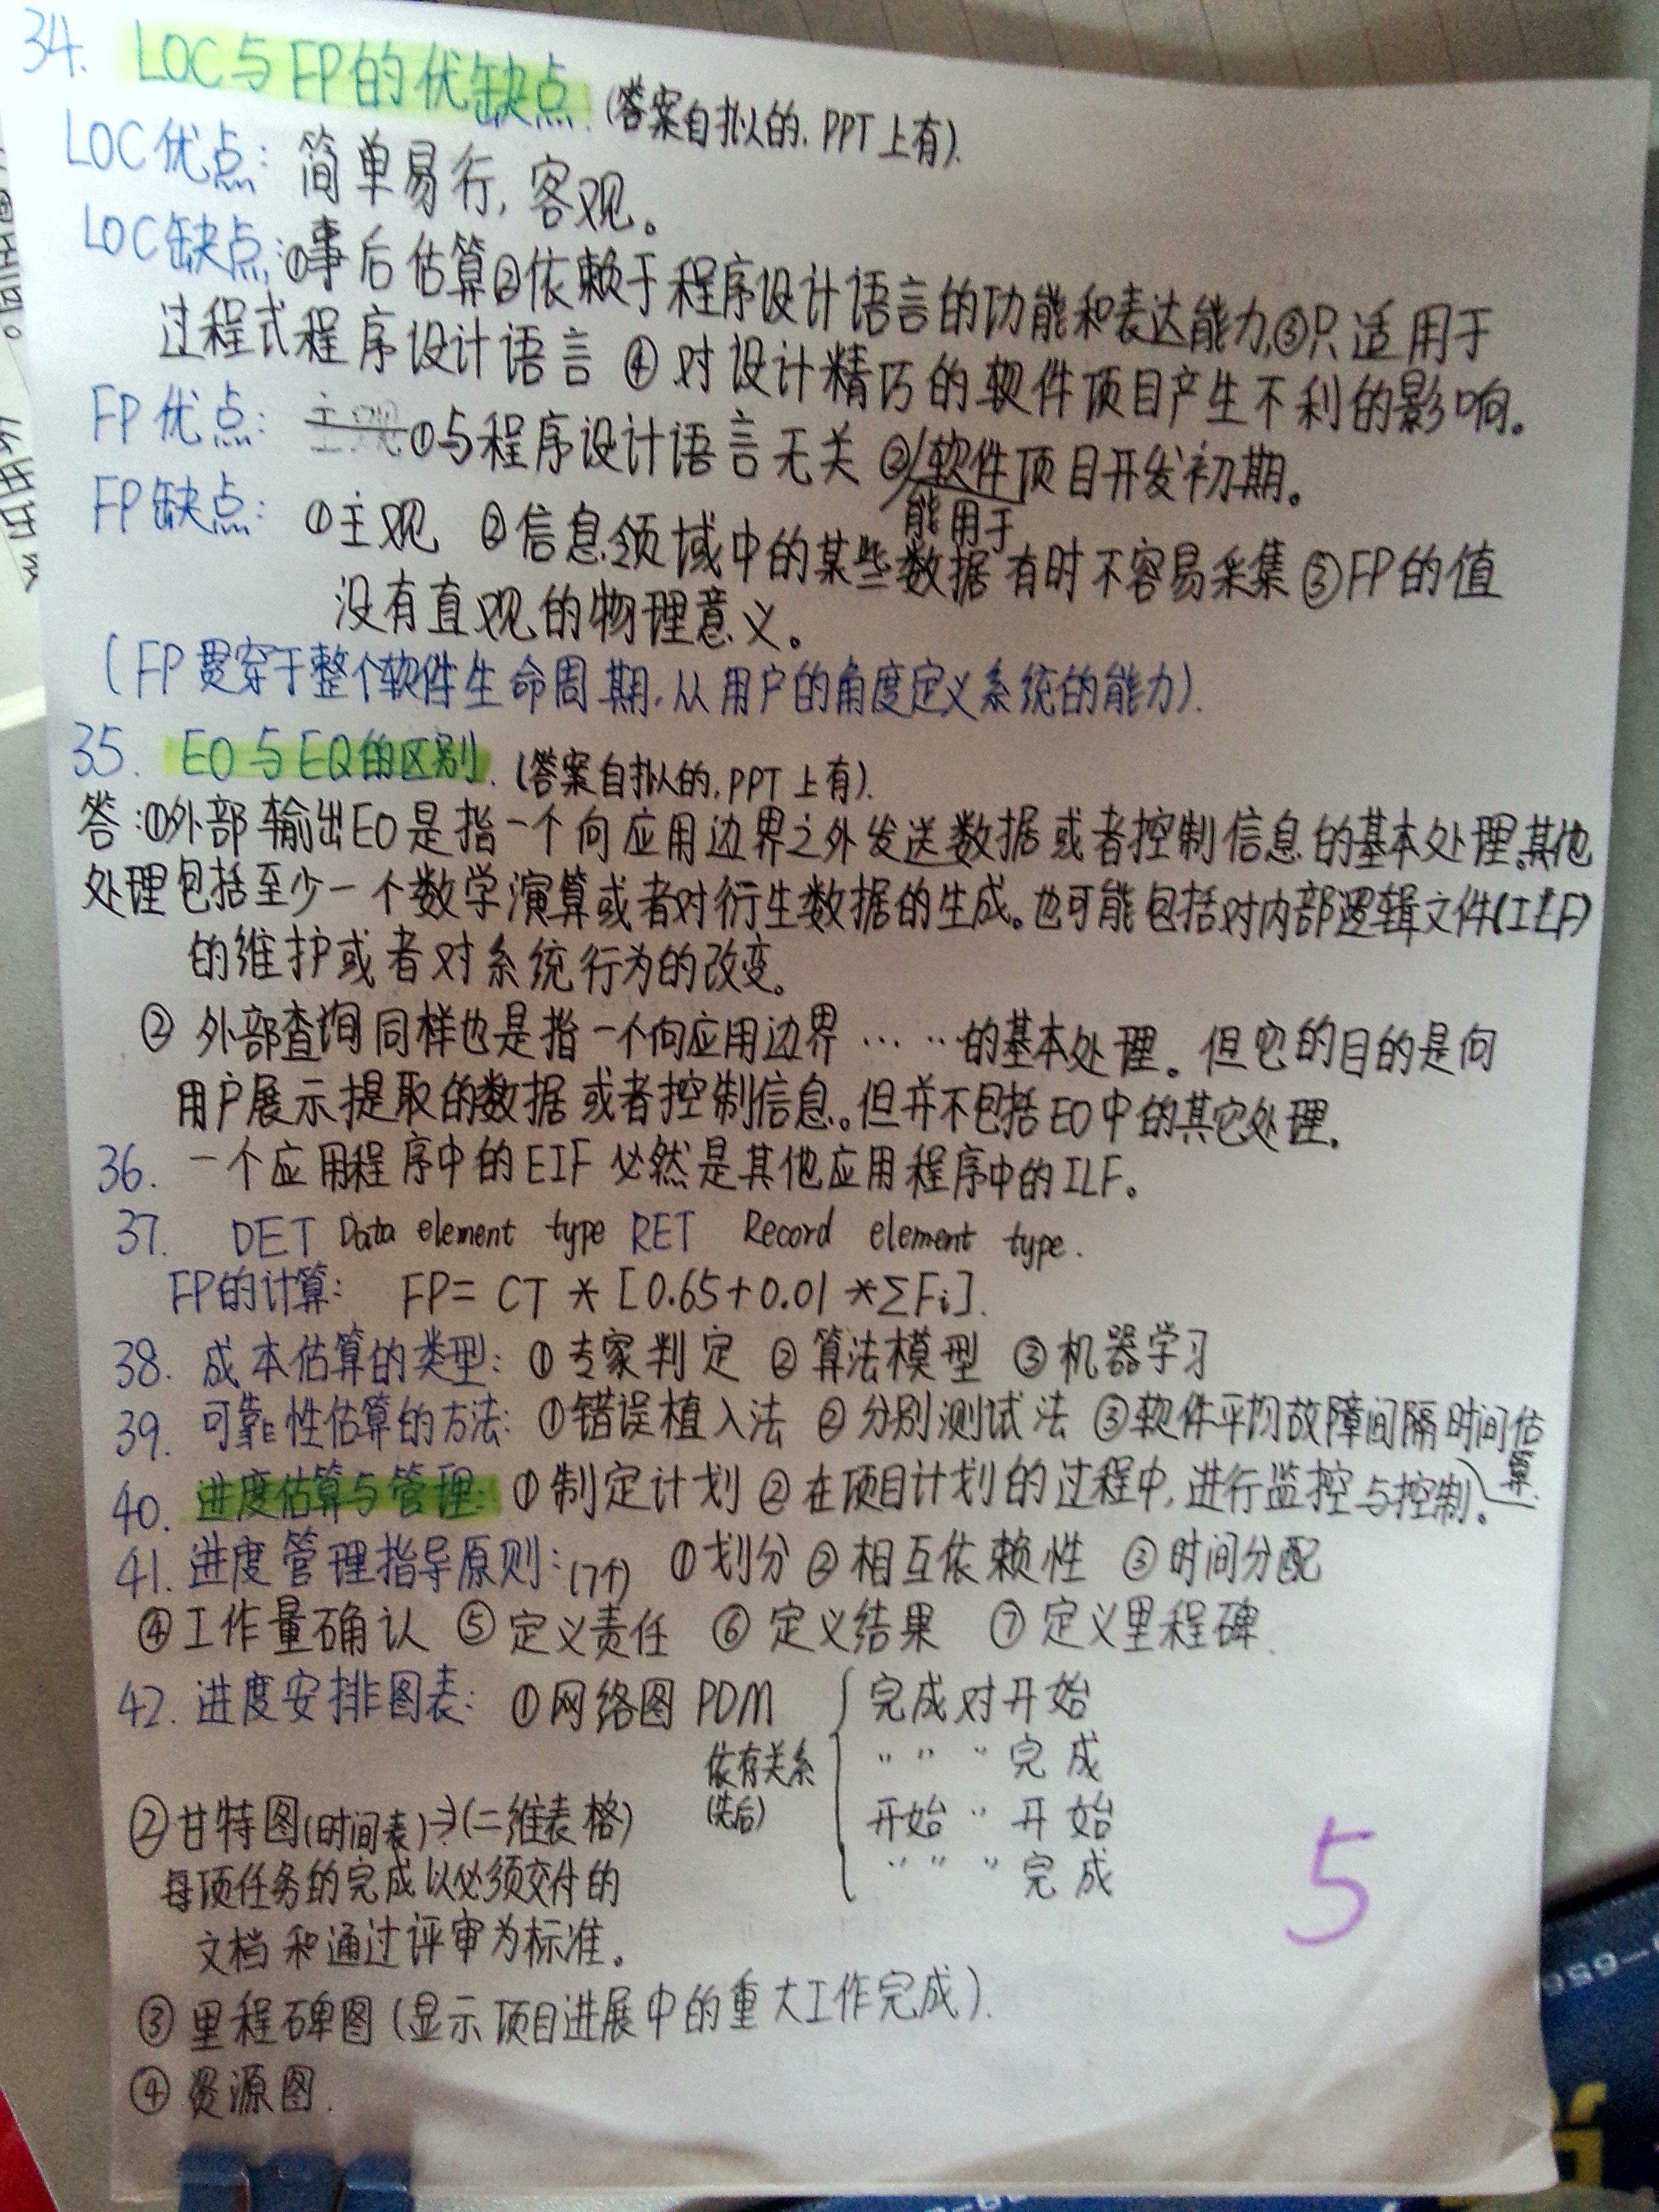 34. LOC与FP的优缺点.(答案自拟的.PPT上有).
LOC优点: 简单易行,客观。
LOC缺点:①事后估算②依赖于程序设计语言的功能和表达能力,③只适用于
过程式程序设计语言 ④对设计精巧的软件项目产生不利的影响。
FP优点: 主观①与程序设计语言无关 ②能用于软件项目开发初期。
FP缺点: ①主观 ②信息领域中的某些数据有时不容易采集③FP的值
没有直观的物理意义。
(FP贯穿于整个软件生命周期.从用户的角度定义系统的能力).
35. EO与EQ的区别.(答案自拟的.PPT上有).
答:①外部输出EO是指一个向应用边界之外发送数据或者控制信息的基本处理.其他
处理包括至少一个数学演算或者对衍生数据的生成。也可能包括对内部逻辑文件(ILF)
的维护或者对系统行为的改变。
② 外部查询同样也是指一个向应用边界……的基本处理。但它的目的是向
用户展示提取的数据或者控制信息。但并不包括EO中的其它处理。
36. 一个应用程序中的EIF必然是其他应用程序中的ILF。
37. DET Data element type RET Record element type.
FP的计算: FP= CT * [0.65+0.01 *ΣFi].
38. 成本估算的类型: ①专家判定 ②算法模型 ③机器学习
39. 可靠性估算的方法: ①错误植入法 ②分别测试法 ③软件平均故障间隔时间估算.
40. 进度估算与管理: ①制定计划 ②在项目计划的过程中,进行监控与控制。
41. 进度管理指导原则:(7个) ①划分 ②相互依赖性 ③时间分配
④工作量确认 ⑤定义责任 ⑥定义结果 ⑦定义里程碑.
42. 进度安排图表: ①网络图 PDM 完成对开始
依存关系 〃 〃 〃 完成
(先后) 开始 〃 开始
〃 〃 〃 完成
②甘特图(时间表)→(二维表格)
每项任务的完成以必须交付的
文档和通过评审为标准。
③里程碑图(显示项目进展中的重大工作完成).
④资源图.
5